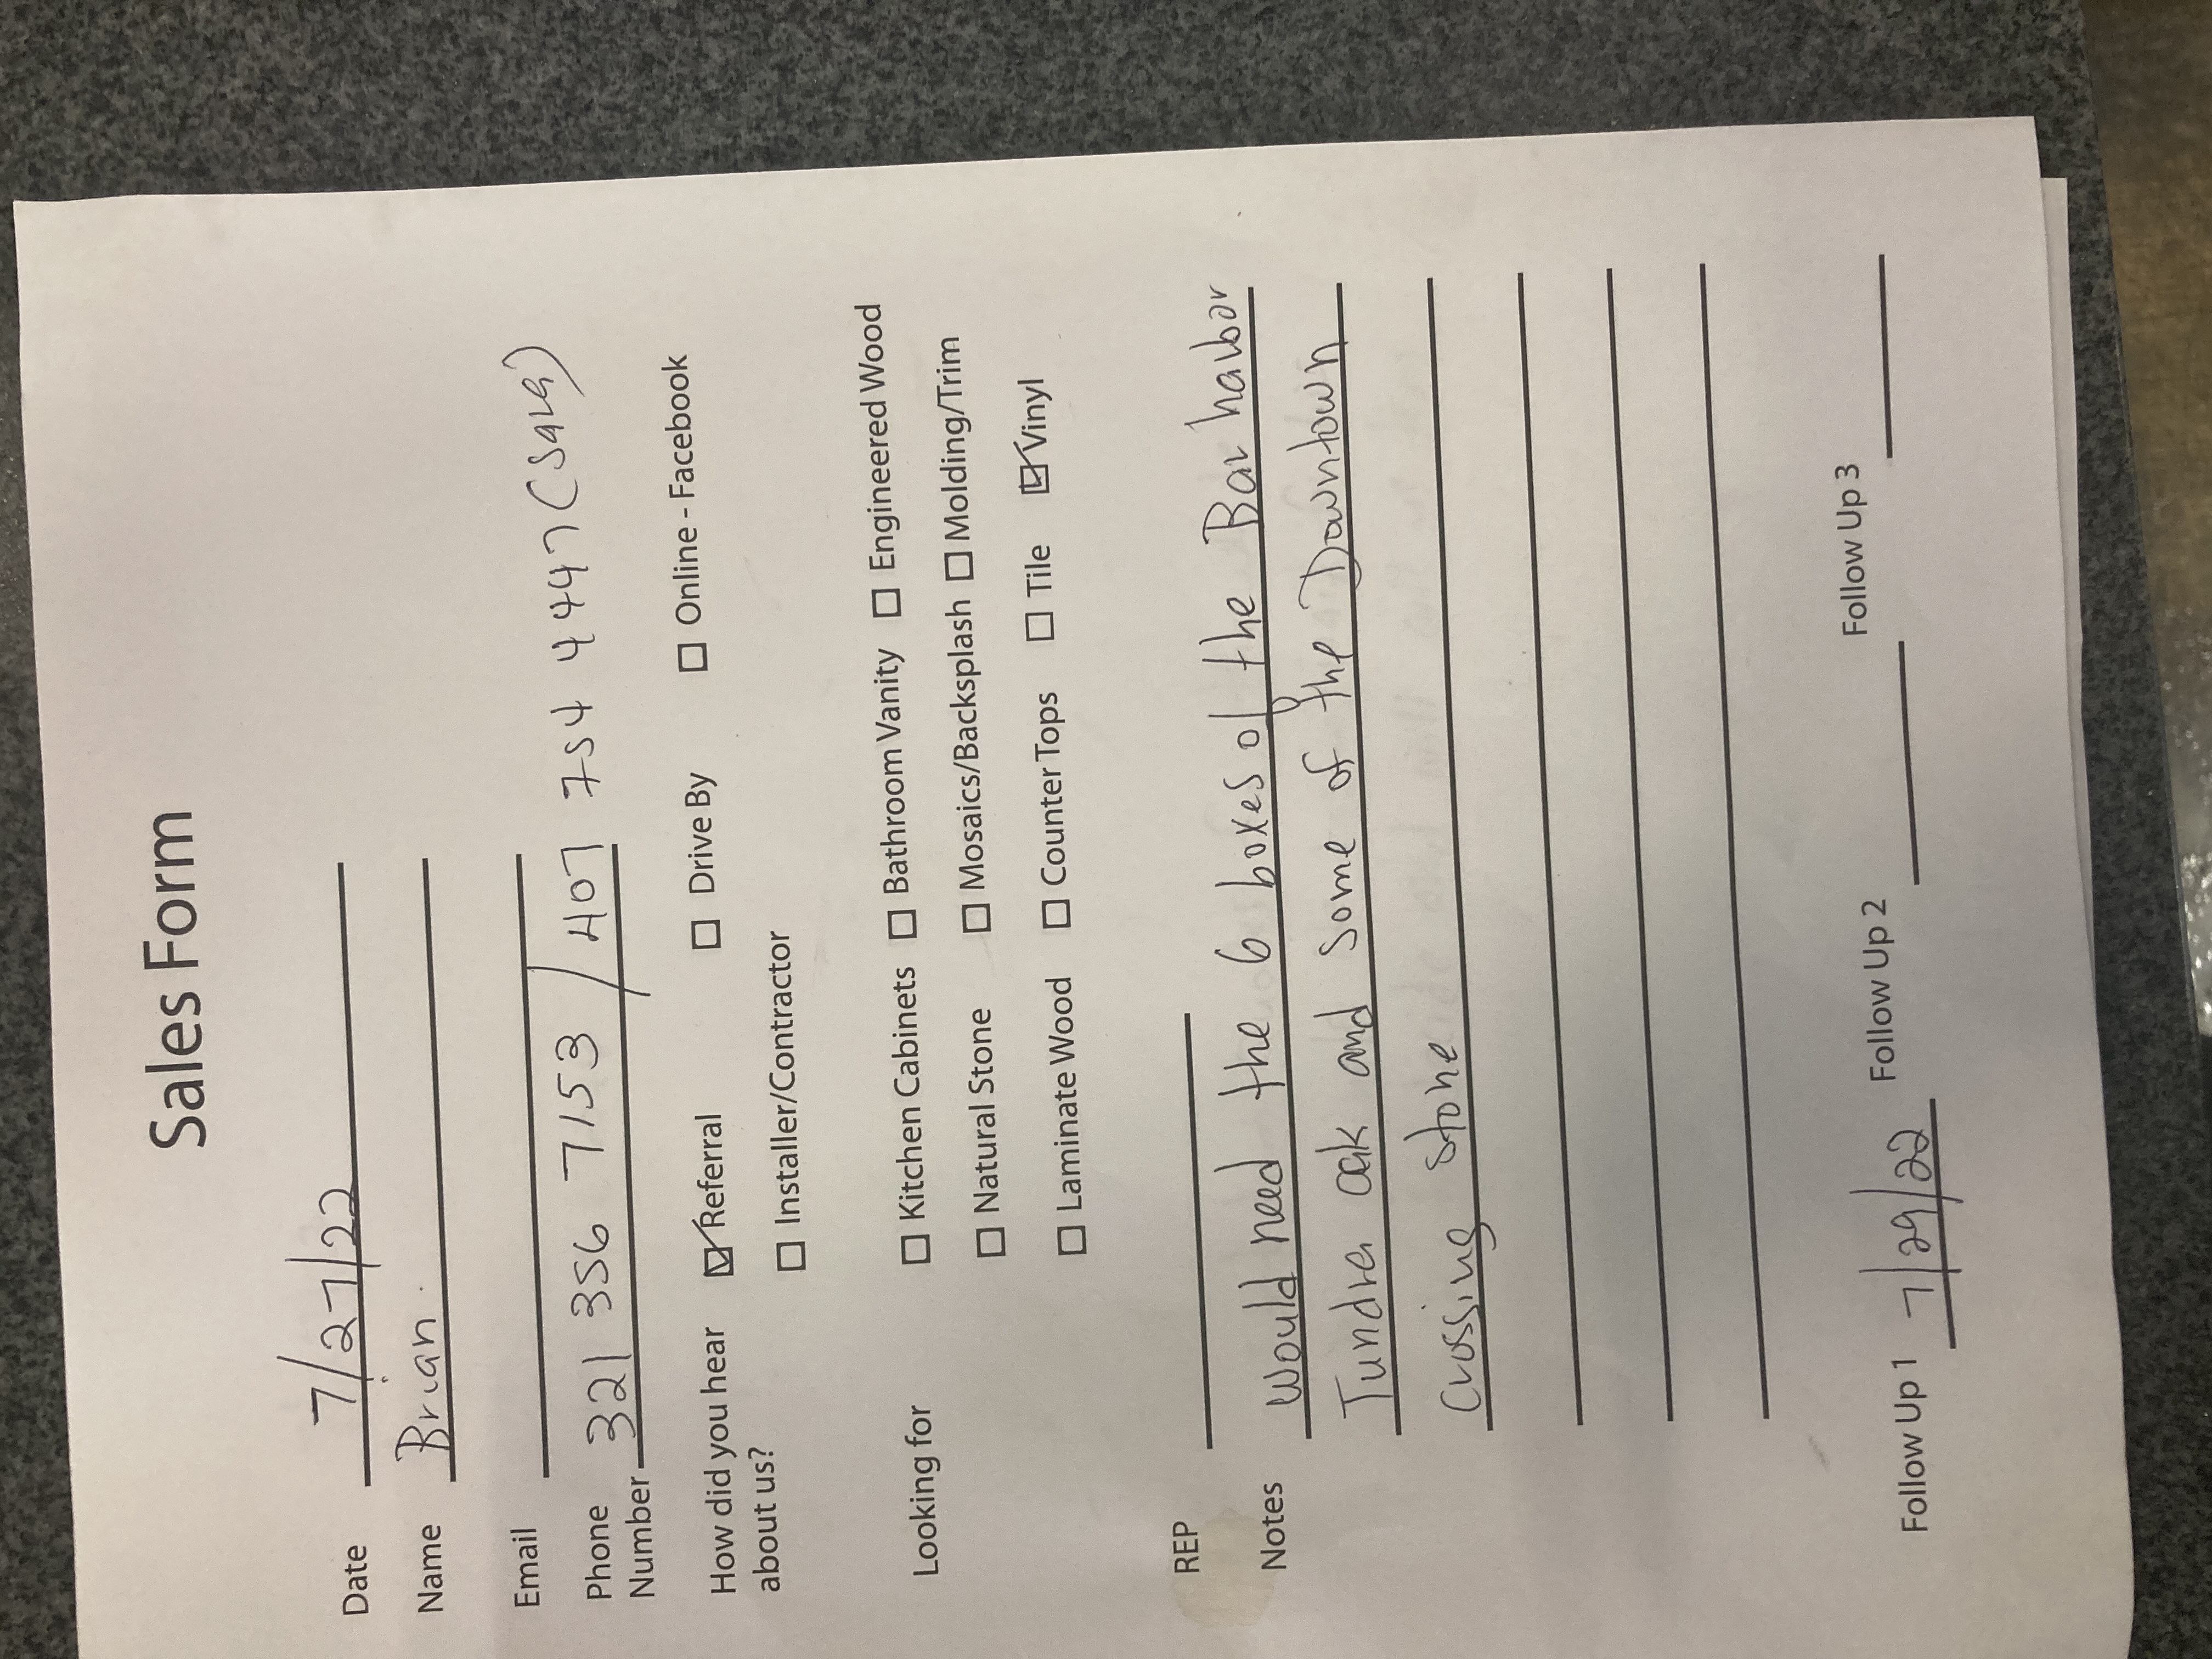 Sales Form
Date 7/27/22
Name Brian
Email
Phone
Number 321 356 7153 / 407 754 4497 (Sara)
How did you hear ☑ Referral ☐ Drive By ☐ Online - Facebook
about us? ☐ Installer/Contractor
Looking for ☐ Kitchen Cabinets ☐ Bathroom Vanity ☐ Engineered Wood
☐ Natural Stone ☐ Mosaics/Backsplash ☐ Molding/Trim
☐ Laminate Wood ☐ Counter Tops ☐ Tile ☑ Vinyl
REP
Notes Would need the 6 boxes of the Bar harbor
Tundra oak and some of the Downtown
Crossing stone
Follow Up 1 7/29/22 Follow Up 2 Follow Up 3